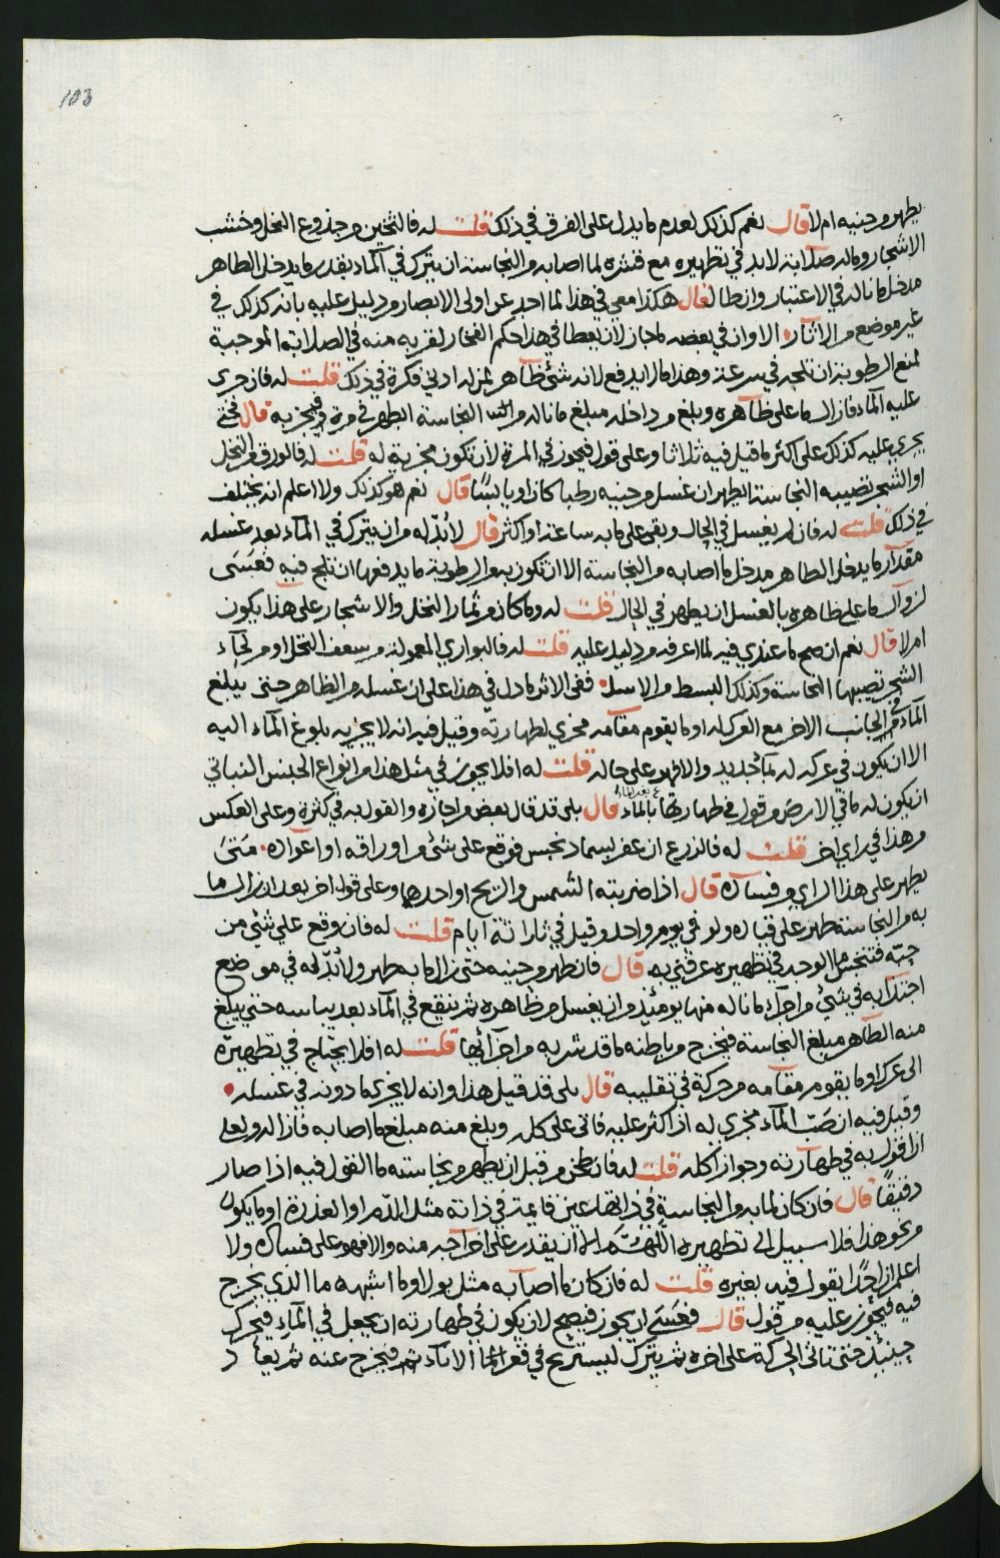 103
يطهر من حينه ام لا قال نعم كذلك لعدم ما يدل على الفرق في ذلك قلت له فالثخين من جذوع النخل وخشب
الاشجار وما له صلابة لابد في تطهيره مع قشره لما اصابه من النجاسة ان يترك في الماء بقدر ما يدخل الطاهر
مدخل ما ناله في الاعتبار وان طال قال هكذا معي في هذا لما اجد عن اولى الابصار من دليل عليه بانه كذلك في
غير موضع من الاثار الا وان في بعضه لما جاز لان يعطا في هذا حكم الفخار لقربه منه في الصلابة الموجبة
لمنع الرطوبة ان تلجه في سرعة وهذا ما لا يدفع لانه شئ ظاهر لمن له ادنى فكرة في ذلك قلت له فان جرى
عليه الماء فازال ما على ظاهره وبلغ من داخله مبلغ ما ناله من النجاسة ايطهر في مرة ويجزيه قال فحتى
يجري عليه كذلك على اكثر ما قيل فيه ثلاثا وعلى قول فيجوز في المرة لان تكون مجزية له قلت له فالورق من النخل
او الشجر تصيبه النجاسة ايطهر ان غسل من حينه رطبا كان او يابسا قال نعم هو كذلك ولا اعلم انه يختلف
في ذلك قلت له فان لم يغسل في الحال وبقى على ما به ساعة او اكثر قال لابد له من ان يترك في الماء بعد غسله
مقدار ما يدخل الطاهر مدخل ما اصابه من النجاسة الا ان تكون به من الرطوبة ما يدفعها ان تلج فيه فعسى
لزوال ما على ظاهره بالغسل ان يطهر في الحال قلت له وما كان من ثمار النخل والاشجار على هذا يكون
ام لا قال نعم ان صح ما عندي فيه لما اعرفه من دليل عليه قلت له فالبواري المعمولة من سعف النخل او من لحاء
الشجر تصيبها النجاسة وكذلك البسط من الاسل ففى الاثر ما دل في هذا على ان غسله من الظاهر حتى يبلغ
الماء في الجانب الاخر مع العرك له او ما يقوم مقامه مجزي لطهارته وقيل فيه انه لا يجزيه بلوغ الماء اليه
الا ان يكون في عركه له بماء جديد والا فهو على حاله قلت له افلا يجوز في مثل هذا من انواع الجنس النباتي
ان يكون له ما في الارض من قول في طهارتها بالماء قال بلى قد قال بعض من اجازه والقول به في كثرة وعلى العكس
من هذا في راي اخر قلت له فالزرع ان عفر بسماد نجس فوقع على شئ من اوراقه او اعواده متى
يطهر على هذا الراي من فساده قال اذا ضربته الشمس والريح او احدهما وعلى قول اخر بعد ان زال ما
به من النجاسة طهر على قياده ولو في يوم واحد وقيل في ثلاثة ايام قلت له فان وقع على شئ من
حبه فتنجس ما الوجه في تطهيره عرفني به قال فان طهر من حينه حتى زال ما به طهر ولا بد له في موضع
اجتذابه في شئ من اجزاء ما ناله منها يومئذ وان يغسل من ظاهره ثم ينقع في الماء بعد يباسه حتى يبلغ
منه الطاهر مبلغ النجاسة فيخرج من باطنه ما قد شربه من اجزائها قلت له افلا يحتاج في تطهيره
الى عرك او ما يقوم مقامه من حركة في تقليبه قال بلى قد قيل هذا وانه لا يجزي ما دونه في غسله
وقيل فيه ان صب الماء مجزي له اذ اكثر عليه فاتى على كله وبلغ منه مبلغ ما اصابه فازاله ويعلى
ان اقول به في طهارته وجواز اكله قلت له فان طحن من قبل ان يطهر من نجاسته ما القول فيه اذا صار
دقيقا قال فان كان لما به من النجاسة في ذاتها عين قايمة في ذاته مثل الدم او العذرة او ما يكون
من نحو هذا فلا سبيل الى تطهيره اللهم الا ان يقدر على اخراجه منه والا فهو على فساده ولا
اعلم ان احدا يقول فيه بغيره قلت له فان كان ما اصابه مثل بول او ما اشبهه ما الذي يخرج
فيه فيجوز عليه من قول قال فعسى ان يجوز فيصح لان يكون في طهارته ان يجعل في الماء فيحرك
حينئذ حتى تاتى الحركة على اخره ثم يترك ليستريح في قعر الاناء ثم فيخرج عنه ثم يعاد